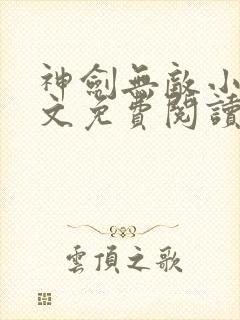 神劍無敵小
文免費閱讀
雲頂之歌